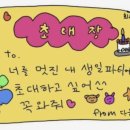 초대장
to.
너를 멋진 내 생일파티에
초대하고 싶어^^
꼭와줘
from